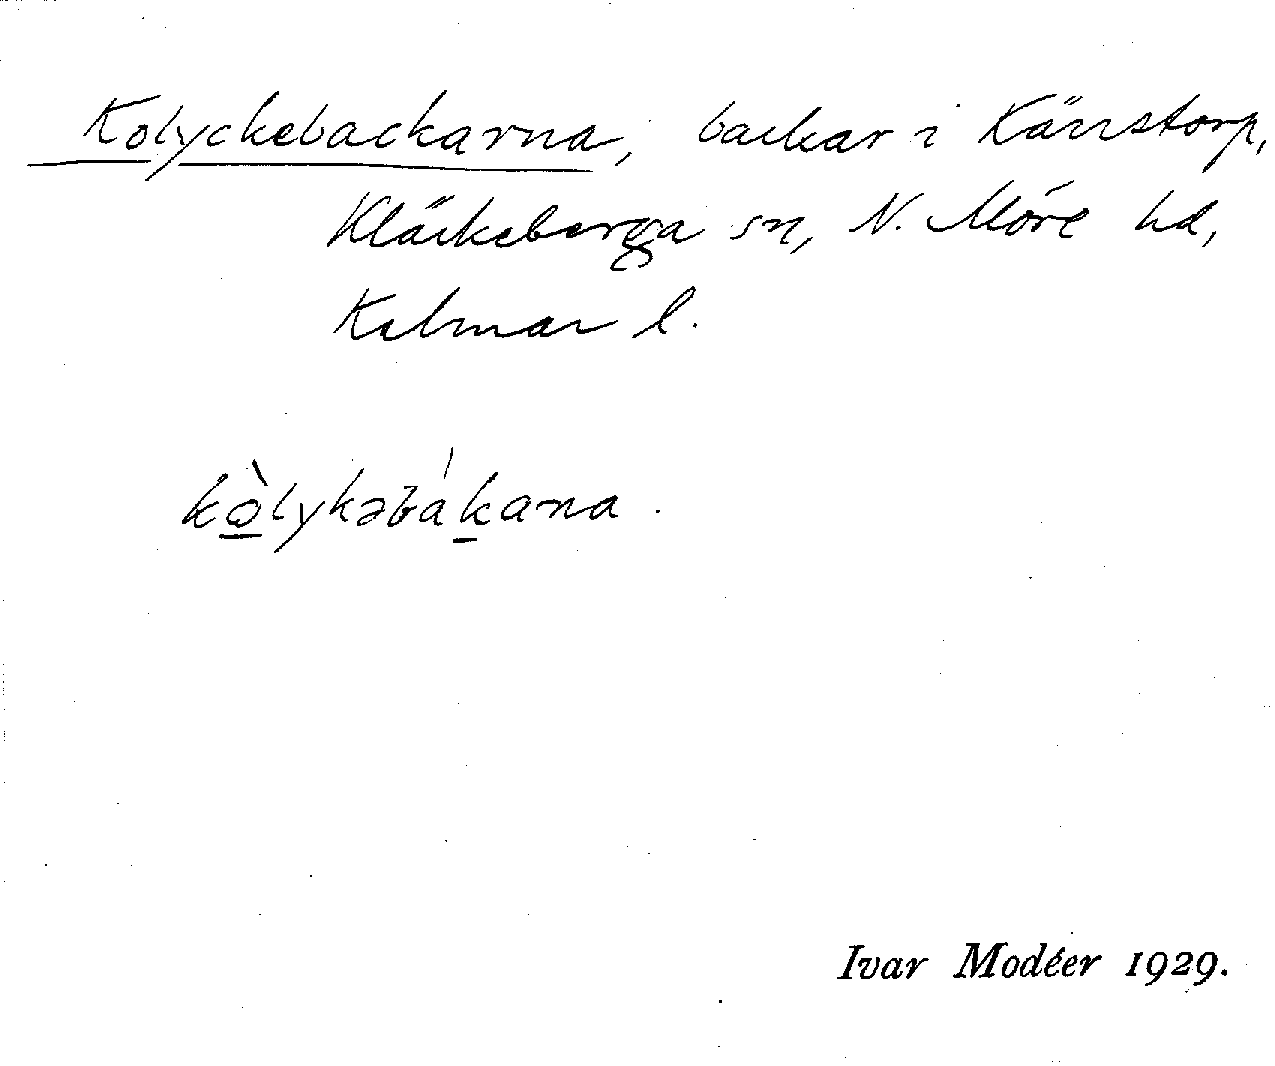 Kolyckebackarna, backar i Kärrstorp,
Kläckeberga sn, N. Möre hd,
Kalmar l.
kòlykəbákana.
Ivar Modéer 1929.